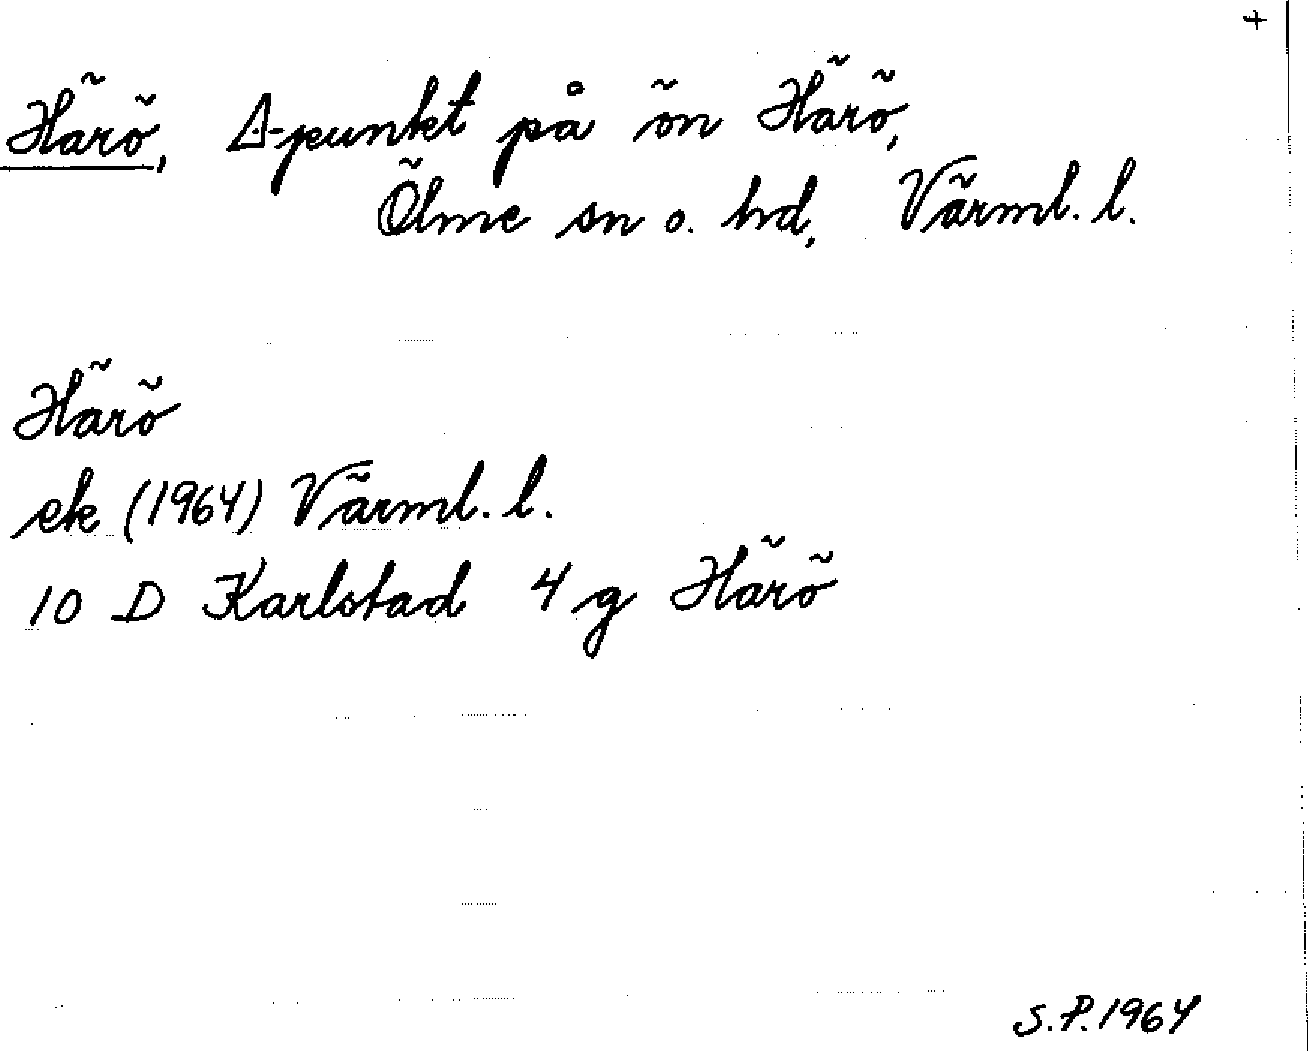 +
Härö, Δ-punkt på ön Härö,
Ölme sn o. hd, Värml. l.
Härö
ek (1964) Värml. l.
10 D Karlstad 4 g Härö
S.P. 1964